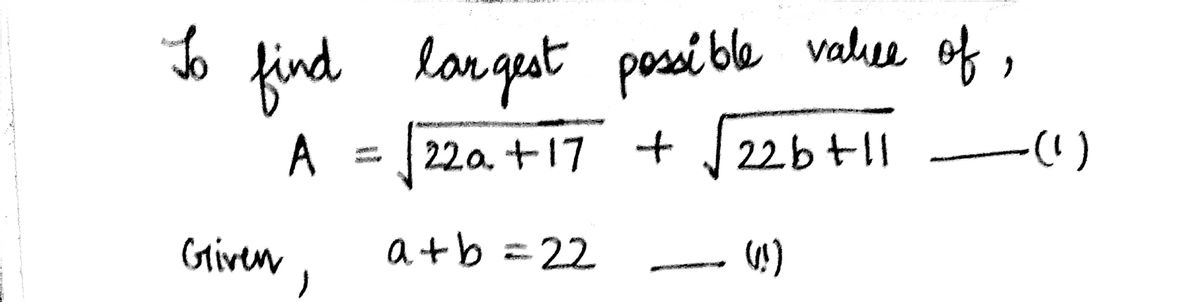 To find largest possible value of,
A = √22a + 17 + √22b + 11 —(1)
Given, a + b = 22 — (11)